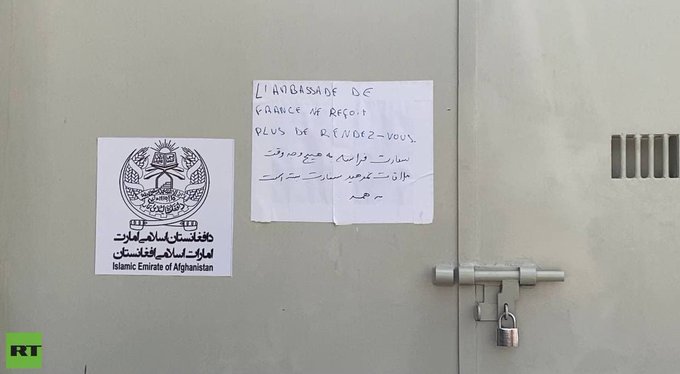 L'AMBASSADE DE
FRANCE NE REÇOIT
PLUS DE RENDEZ-VOUS.
سفارت فرانسه به هیچ وجه وقت
ملاقات نمیدهد سفارت بسته است
دافغانستان اسلامی امارت
امارات اسلامی افغانستان
Islamic Emirate of Afghanistan
RT